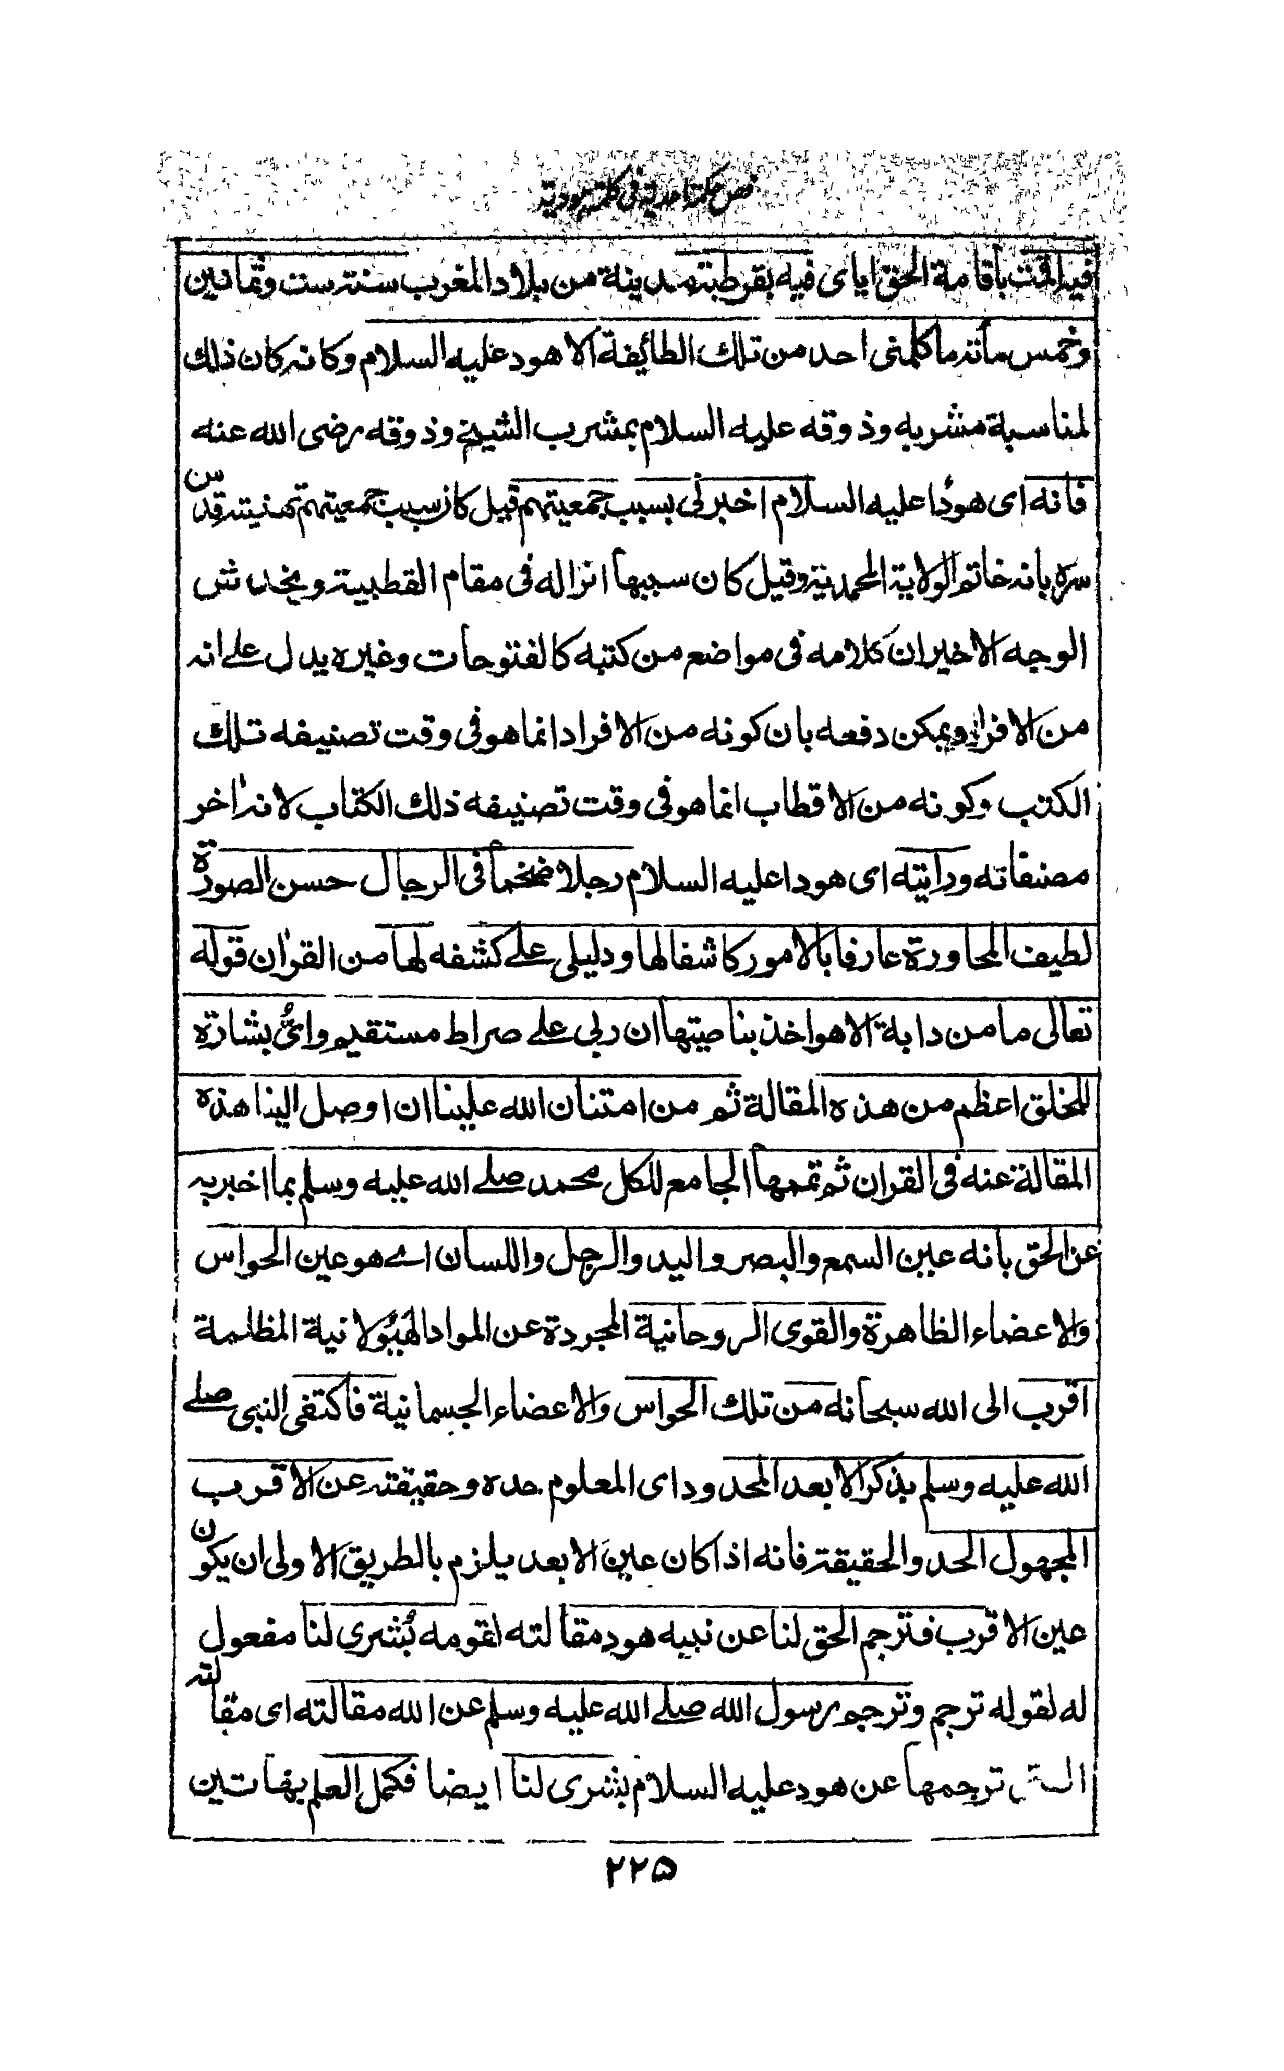 فص حكمة احدية فى كلمة هودية
فيه اقمت باقامة الحق اياى فيه بقرطبة مدينة من بلاد المغرب سنة ست وثمانين
وخمس مأته ما كلمنى احد من تلك الطائفة الا هود عليه السلام وكانه كان ذلك
لمناسبة مشربه وذوقه عليه السلام بمشرب الشيخ وذوقه رضى الله عنه
فانه اى هودا عليه السلام اخبرنى بسبب جمعيتهم قيل كان سبب جمعيتهم تهنيته قدس
سره بانه خاتم الولاية المحمدية وقيل كان سببها انزاله فى مقام القطبية ويخدش
الوجه الاخير ان كلامه فى مواضع من كتبه كالفتوحات وغيره يدل على انه
من الافراد ويمكن دفعه بان كونه من الافراد انما هو فى وقت تصنيفه تلك
الكتب وكونه من الاقطاب انما هو فى وقت تصنيفه ذلك الكتاب لانه اخر
مصنفاته ورأيته اى هودا عليه السلام رجلا ضخما فى الرجال حسن الصورة
لطيف المحاورة عارفا بالامور كاشفا لها ودليلى على كشفه لها من القرٰان قوله
تعالى ما من دابة الا هو اخذ بناصيتها ان ربى على صراط مستقيم واىُّ بشارة
للخلق اعظم من هذه المقالة ثم من امتنان الله علينا ان اوصل الينا هذه
المقالة عنه فى القران ثم تممها الجامع للكل محمد صلے الله عليه وسلم بما اخبر به
عن الحق بانه عين السمع والبصر واليد والرجل واللسان اے هو عين الحواس
والاعضاء الظاهرة والقوى الروحانية المجردة عن المواد الهيولانية المظلمة
اقرب الى الله سبحانه من تلك الحواس والاعضاء الجسمانية فاكتفى النبى صلے
الله عليه وسلم بذكر الابعد المحدود اى المعلوم حده وحقيقته عن الاقرب
المجهول الحد والحقيقة فانه اذا كان عين الابعد يلزم بالطريق الاولى ان يكون
عين الاقرب فترجم الحق لنا عن نبيه هود مقالته لقومه بُشرى لنا مفعول
له لقوله ترجم وترجم رسول الله صلے الله عليه وسلم عن الله مقالته اى مقالته
ترجمها عن هود عليه السلام بشرى لنا ايضا فكمل العلم بهاتين
۲۲۵